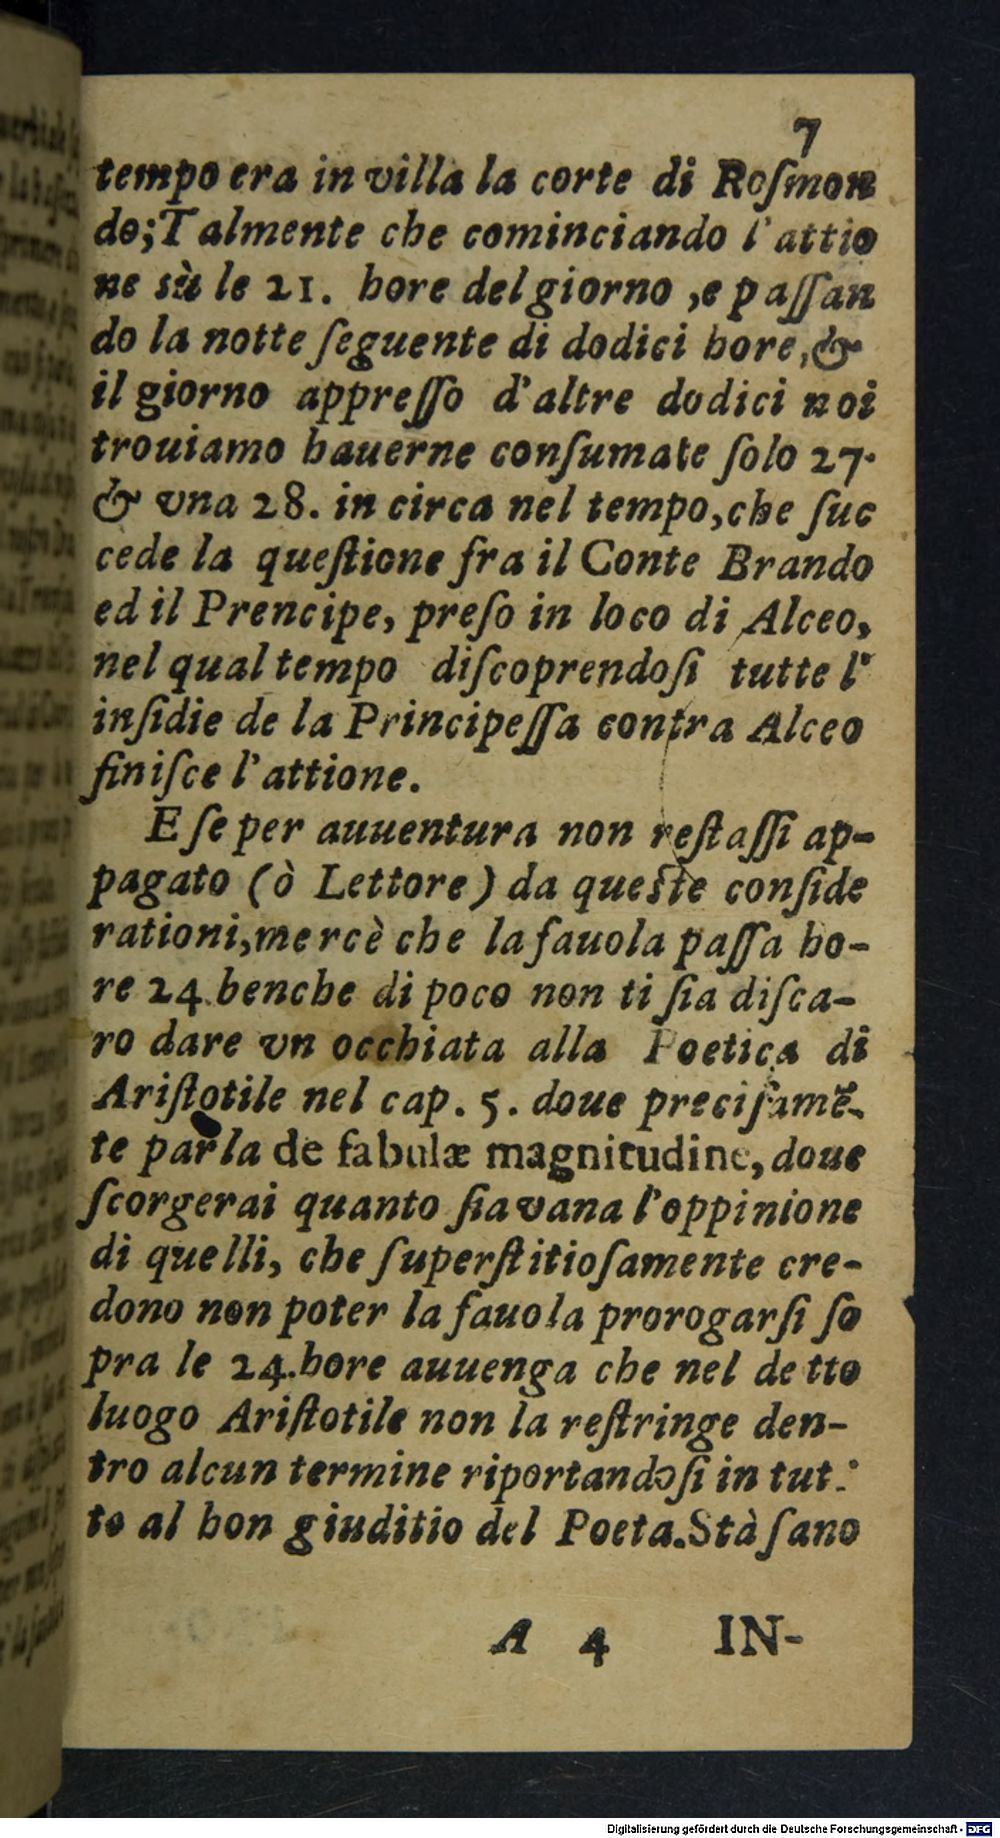 7
tempo era in villa la corte di Roſmon
do;Talmente che cominciando l'attio
ne sù le 21. hore del giorno ,e paſſan
do la notte ſeguente di dodici hore,&
il giorno appreſſo d'altre dodici noi
trouiamo hauerne conſumate ſolo 27.
& vna 28. in circa nel tempo,che ſuc
cede la queſtione fra il Conte Brando
ed il Prencipe, preſo in loco di Alceo,
nel qual tempo diſcoprendoſi tutte l'
inſidie de la Principeſſa contra Alceo
finiſce l'attione.
E ſe per auuentura non reſtaſſi ap-
pagato (ò Lettore) da queſte conſide
rationi,mercè che la fauola paſſa ho-
re 24. benche di poco non ti ſia diſca-
ro dare vn occhiata alla Poetica di
Ariſtotile nel cap. 5. doue preciſamē-
te parla de fabulæ magnitudine, doue
ſcorgerai quanto ſia vana l'oppinione
di quelli, che ſuperſtitioſamente cre-
dono non poter la fauola prorogarſi ſo
pra le 24.hore auuenga che nel detto
luogo Ariſtotile non la reſtringe den-
tro alcun termine riportandoſi in tut-
to al bon giuditio del Poeta.Stà ſano
A 4 IN-
Digitalisierung gefördert durch die Deutsche Forschungsgemeinschaft - DFG